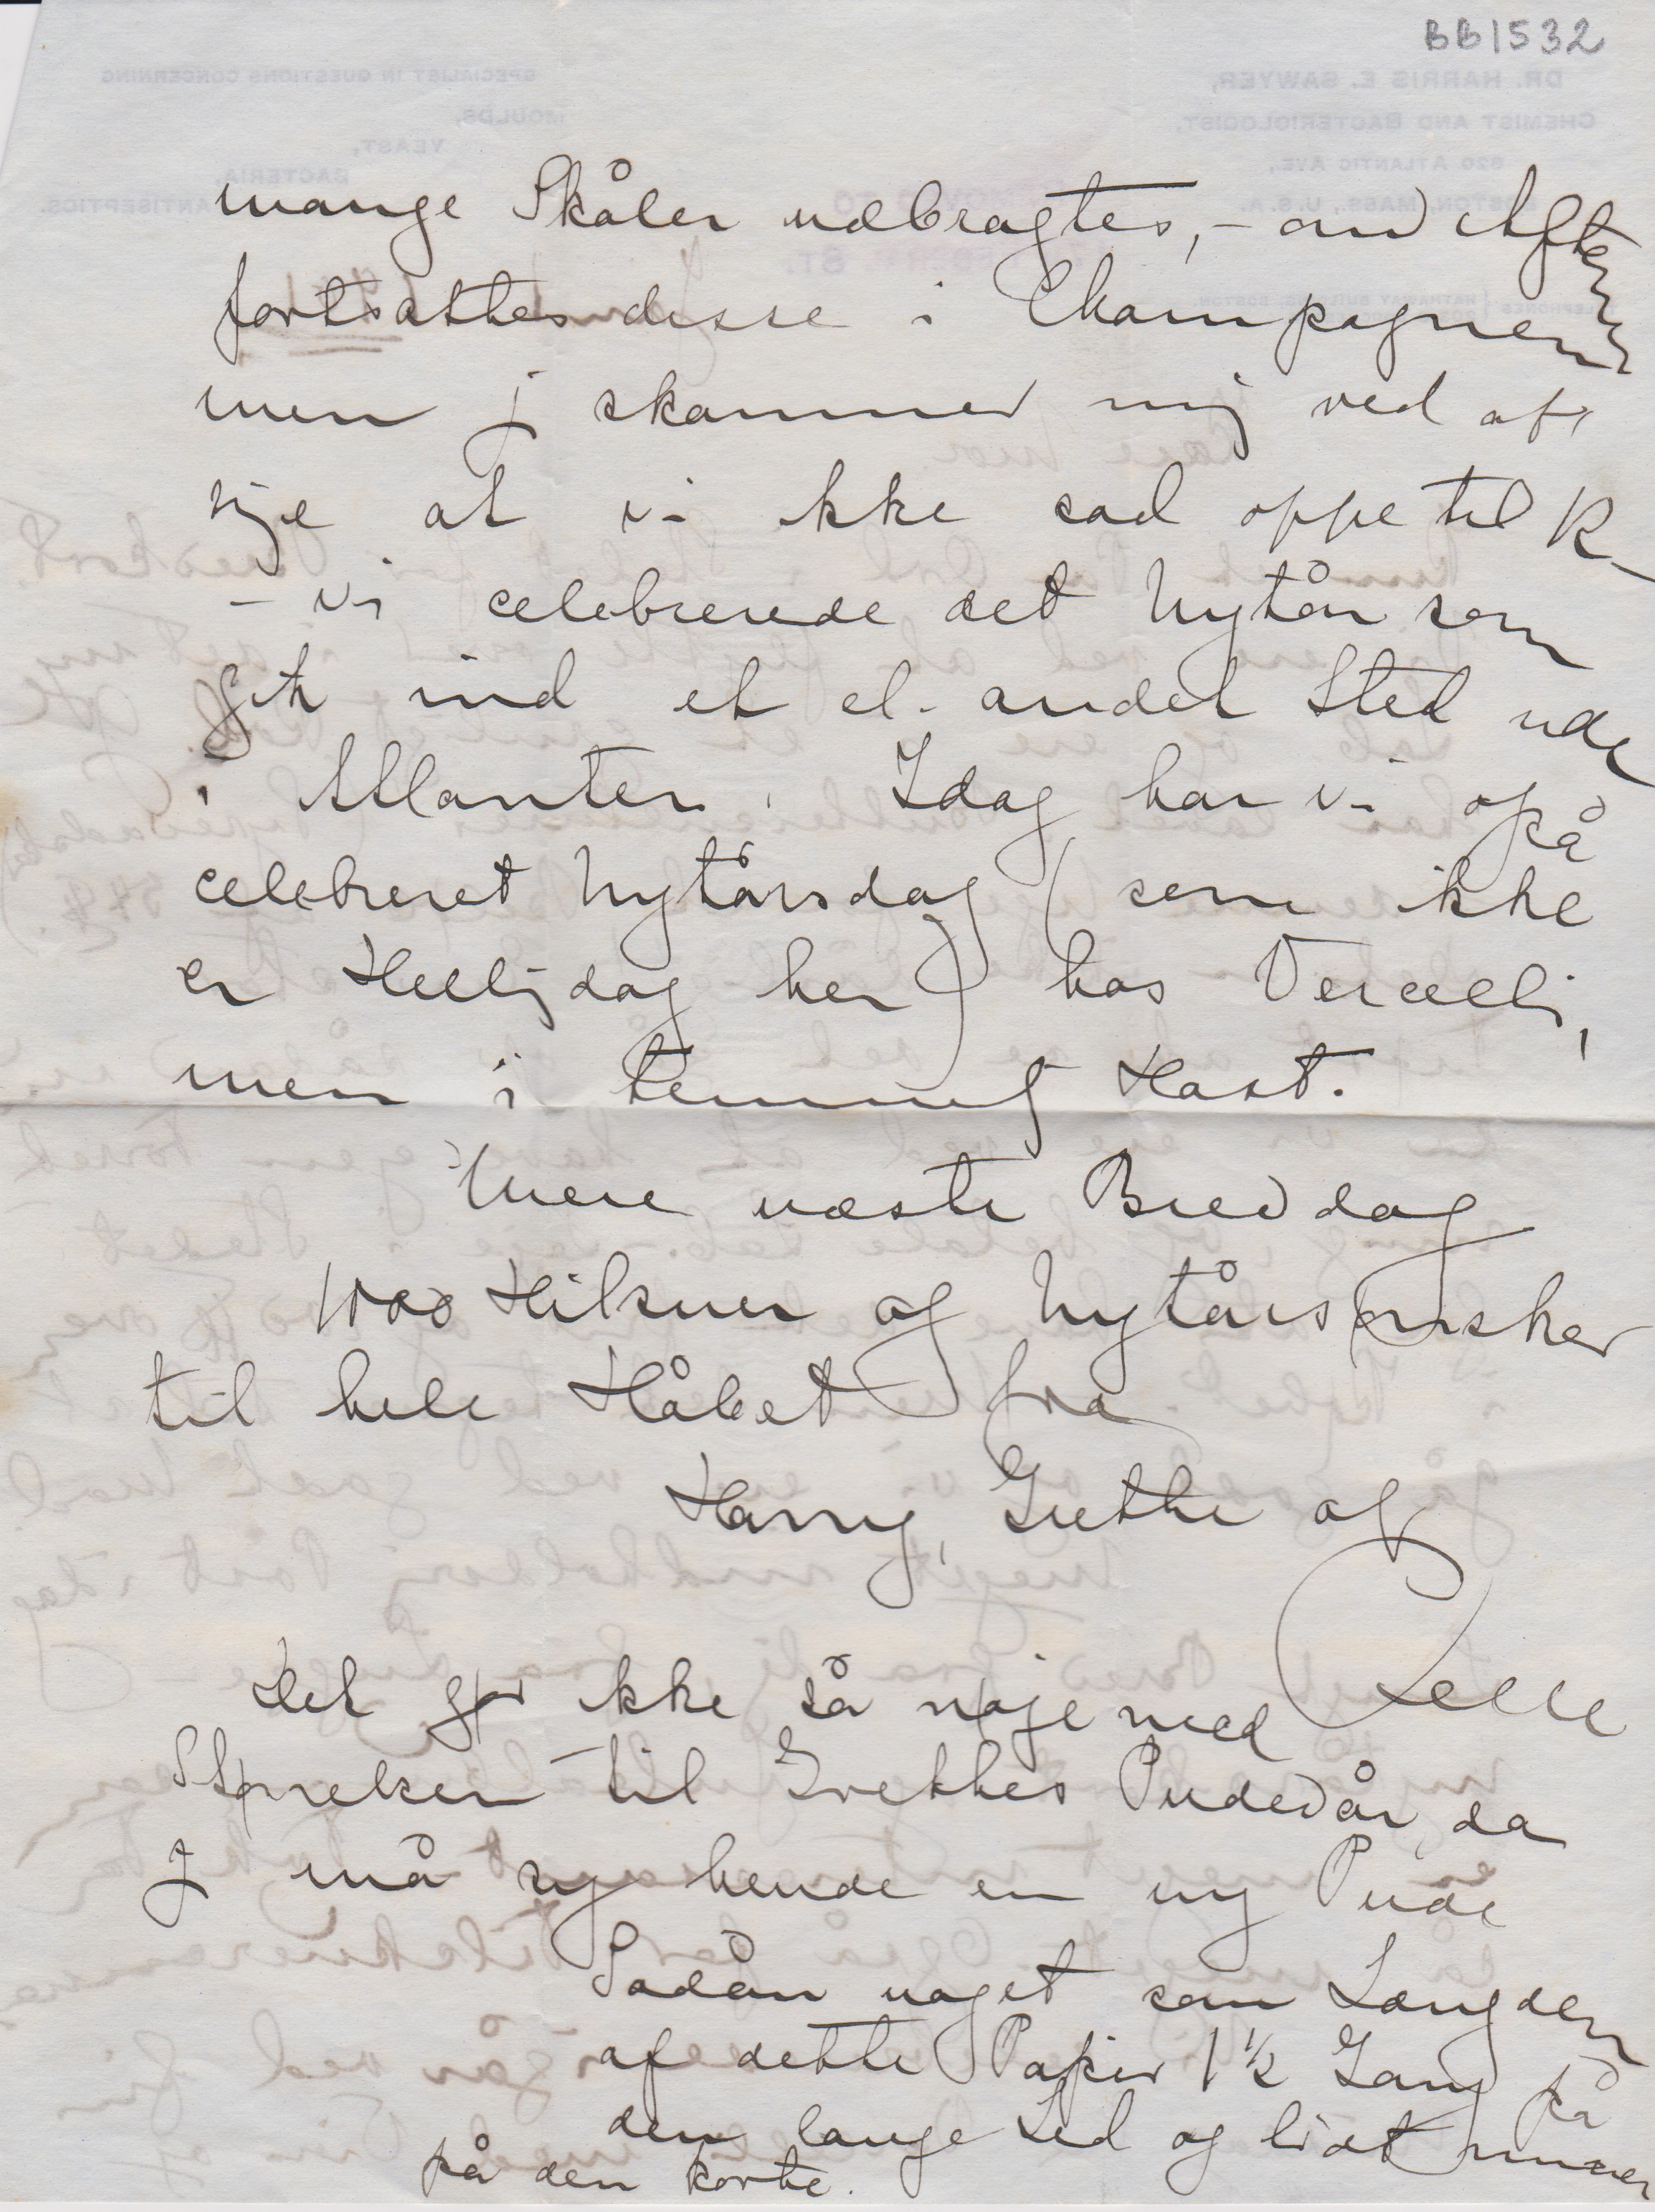 BB1532
mange Skåler udbragtes, - om Aftenen
fortsattes disse i Champagnen
men j skammer mig ved at
sige at vi ikke sad oppe til 12
- vi celebrerede det Nytår som
gik ind et el. andet Sted ude
i Atlanten. Idag har vi også
celebreret Nytårsdag (som ikke
er Helligdag her) hos Vercelli,
men i temmelig Hast.
Mere næste Brevdag
1000 Hilsner og Nytårsønsker
til hele Håbet fra
Harry, Grethe og
Pelle
Det gør ikke så nøje med
Størrelsen til Grethes Pudevår, da
J må sy hende en ny Pude
Sådan noget som Længden
af dette Papir 1 1/2 Gang på
den lange Led og lidt mindre
på den korte.